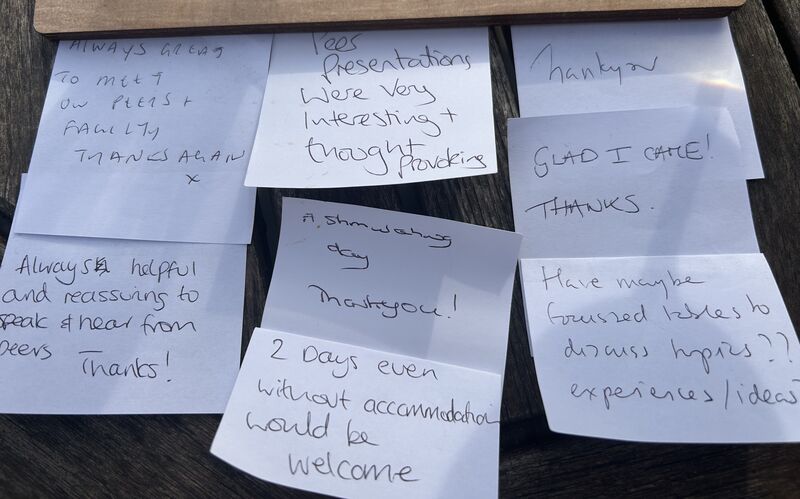 ALWAYS GREAT
TO MEET
OUR PEERS +
FACULTY
THANKS AGAIN
x
Always helpful
and reassuring to
speak & hear from
peers Thanks!
Peer
Presentations
Were very
Interesting +
thought provoking
A stimulating
day
Thankyou!
2 Days even
without accommodation
would be
welcome
Thankyou
GLAD I CAME!
THANKS.
Have maybe
focussed tables to
discuss topics??
experiences/ideas?